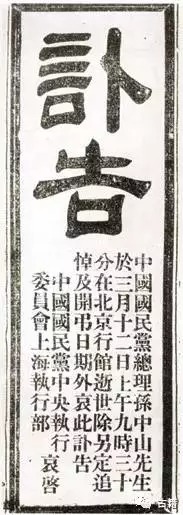 訃告
中國國民黨總理孫中山先生
於三月十二日上午九時三十
分在北京行館逝世除另定追
悼及開弔日期外哀此訃告
中國國民黨中央執行
委員會上海執行部
哀啓
古籍